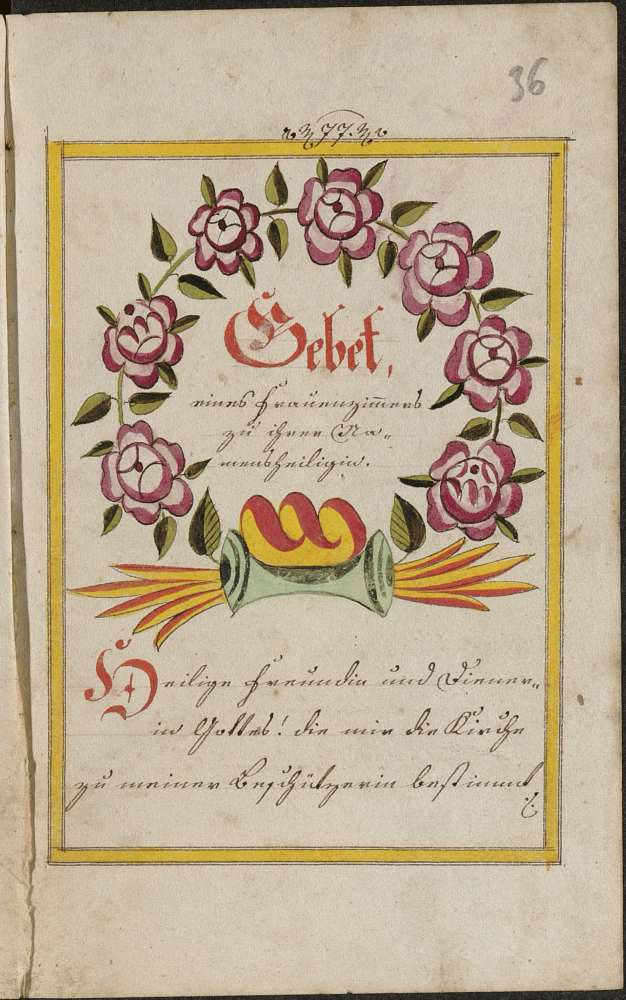 36
77.
Gebet,
eines Frauenzim̄ers
zu ihrer Na„
mensheiligin.
Heilige Freundin und Diener„
in Gottes! die mir die Kirche
zu meiner Beschützerin bestimmt